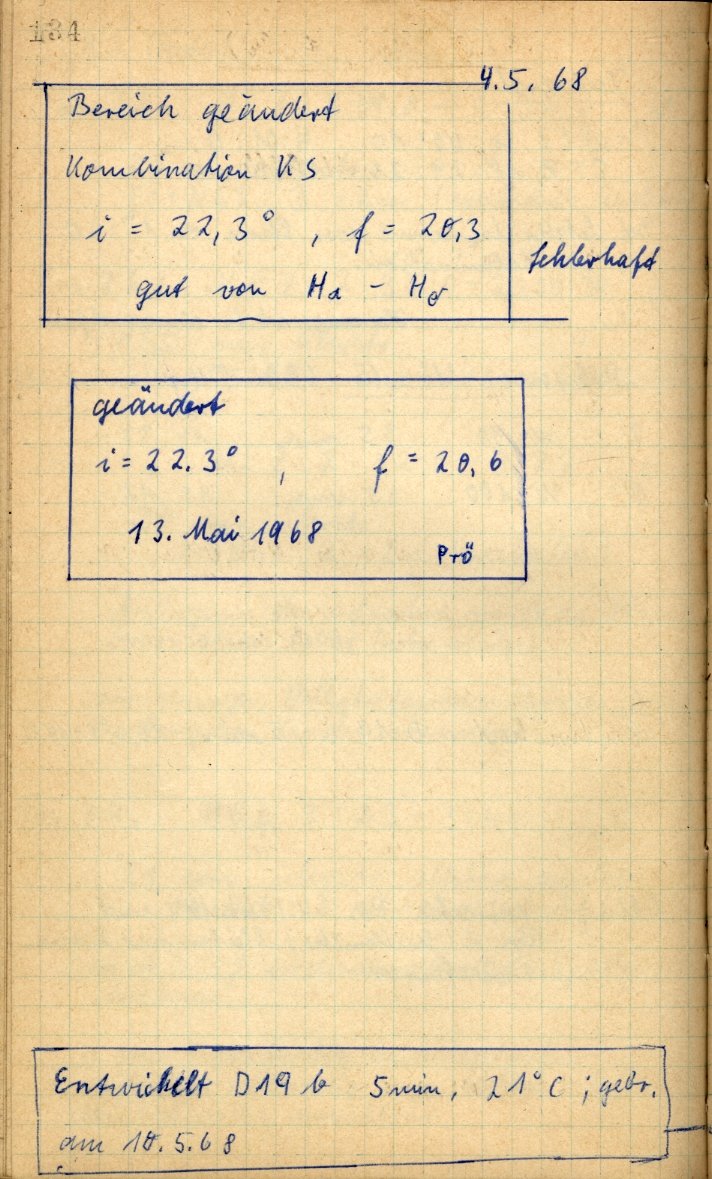 134
4.5. 68
Bereich geändert
Kombination KS
i = 22,3° , f = 20,3
fehlerhaft
gut von Hα - Hδ
geändert
i = 22.3° , f = 20,6
13. Mai 1968
Prö
Entwickelt D19 b 5 min, 21°C ; gebr.
am 18.5.68